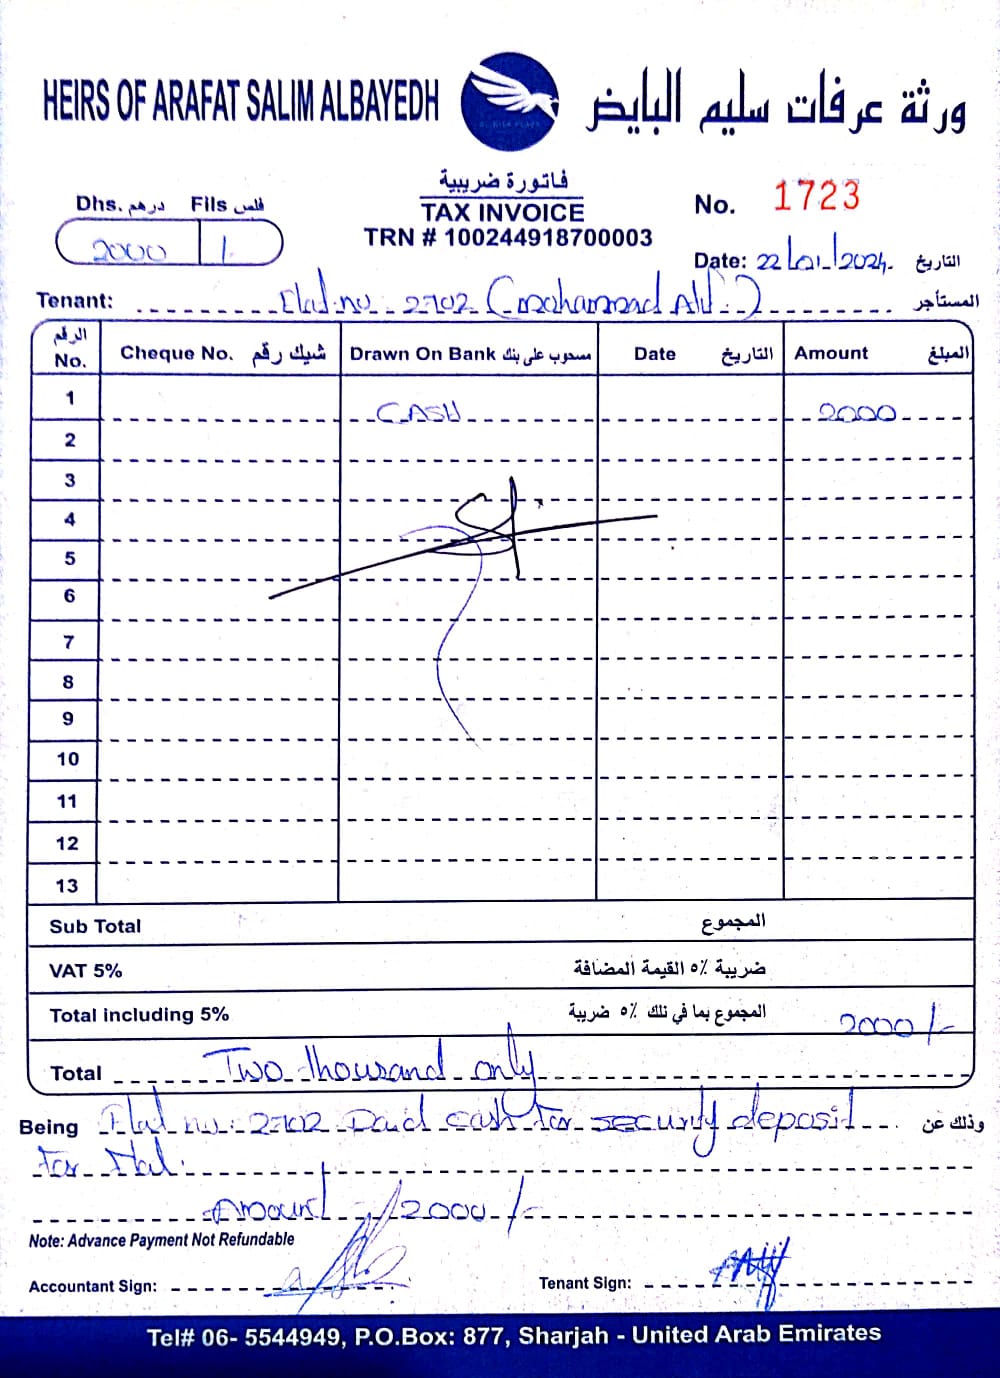 HEIRS OF ARAFAT SALIM ALBAYEDH
ورثة عرفات سليم البايض
فاتورة ضريبية
TAX INVOICE
TRN # 100244918700003
Dhs. درهم Fils فلس
2000 /-
No. 1723
Date: 22/01/2024. التاريخ
Tenant: Flat no. 2702 (mohammad Ali.) المستأجر
الرقم
No. Cheque No. شيك رقم Drawn On Bank مسحوب على بنك Date التاريخ Amount المبلغ
1 CASH 2000
2
3
4
5
6
7
8
9
10
11
12
13
Sub Total المجموع
VAT 5% ضريبة ٥٪ القيمة المضافة
Total including 5% المجموع بما في تلك ٥٪ ضريبة 2000/-
Total Two thousand only
Being Flat no: 2702 Paid cash for security deposit وذلك عن
for flat.
Amount 2000/-
Note: Advance Payment Not Refundable
Accountant Sign: Tenant Sign:
Tel# 06- 5544949, P.O.Box: 877, Sharjah - United Arab Emirates